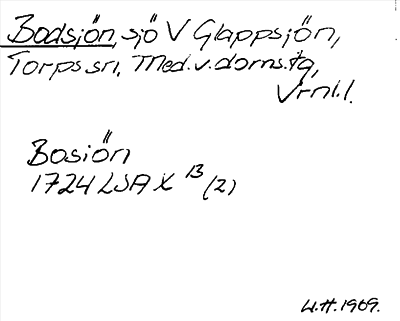 Bodsjön, sjö V Glappsjön,
Torps sn, Med.v.doms.tg,
Vrnl.l.
Bosiön
1724 LSA X 13 (2)
L.H. 1969.